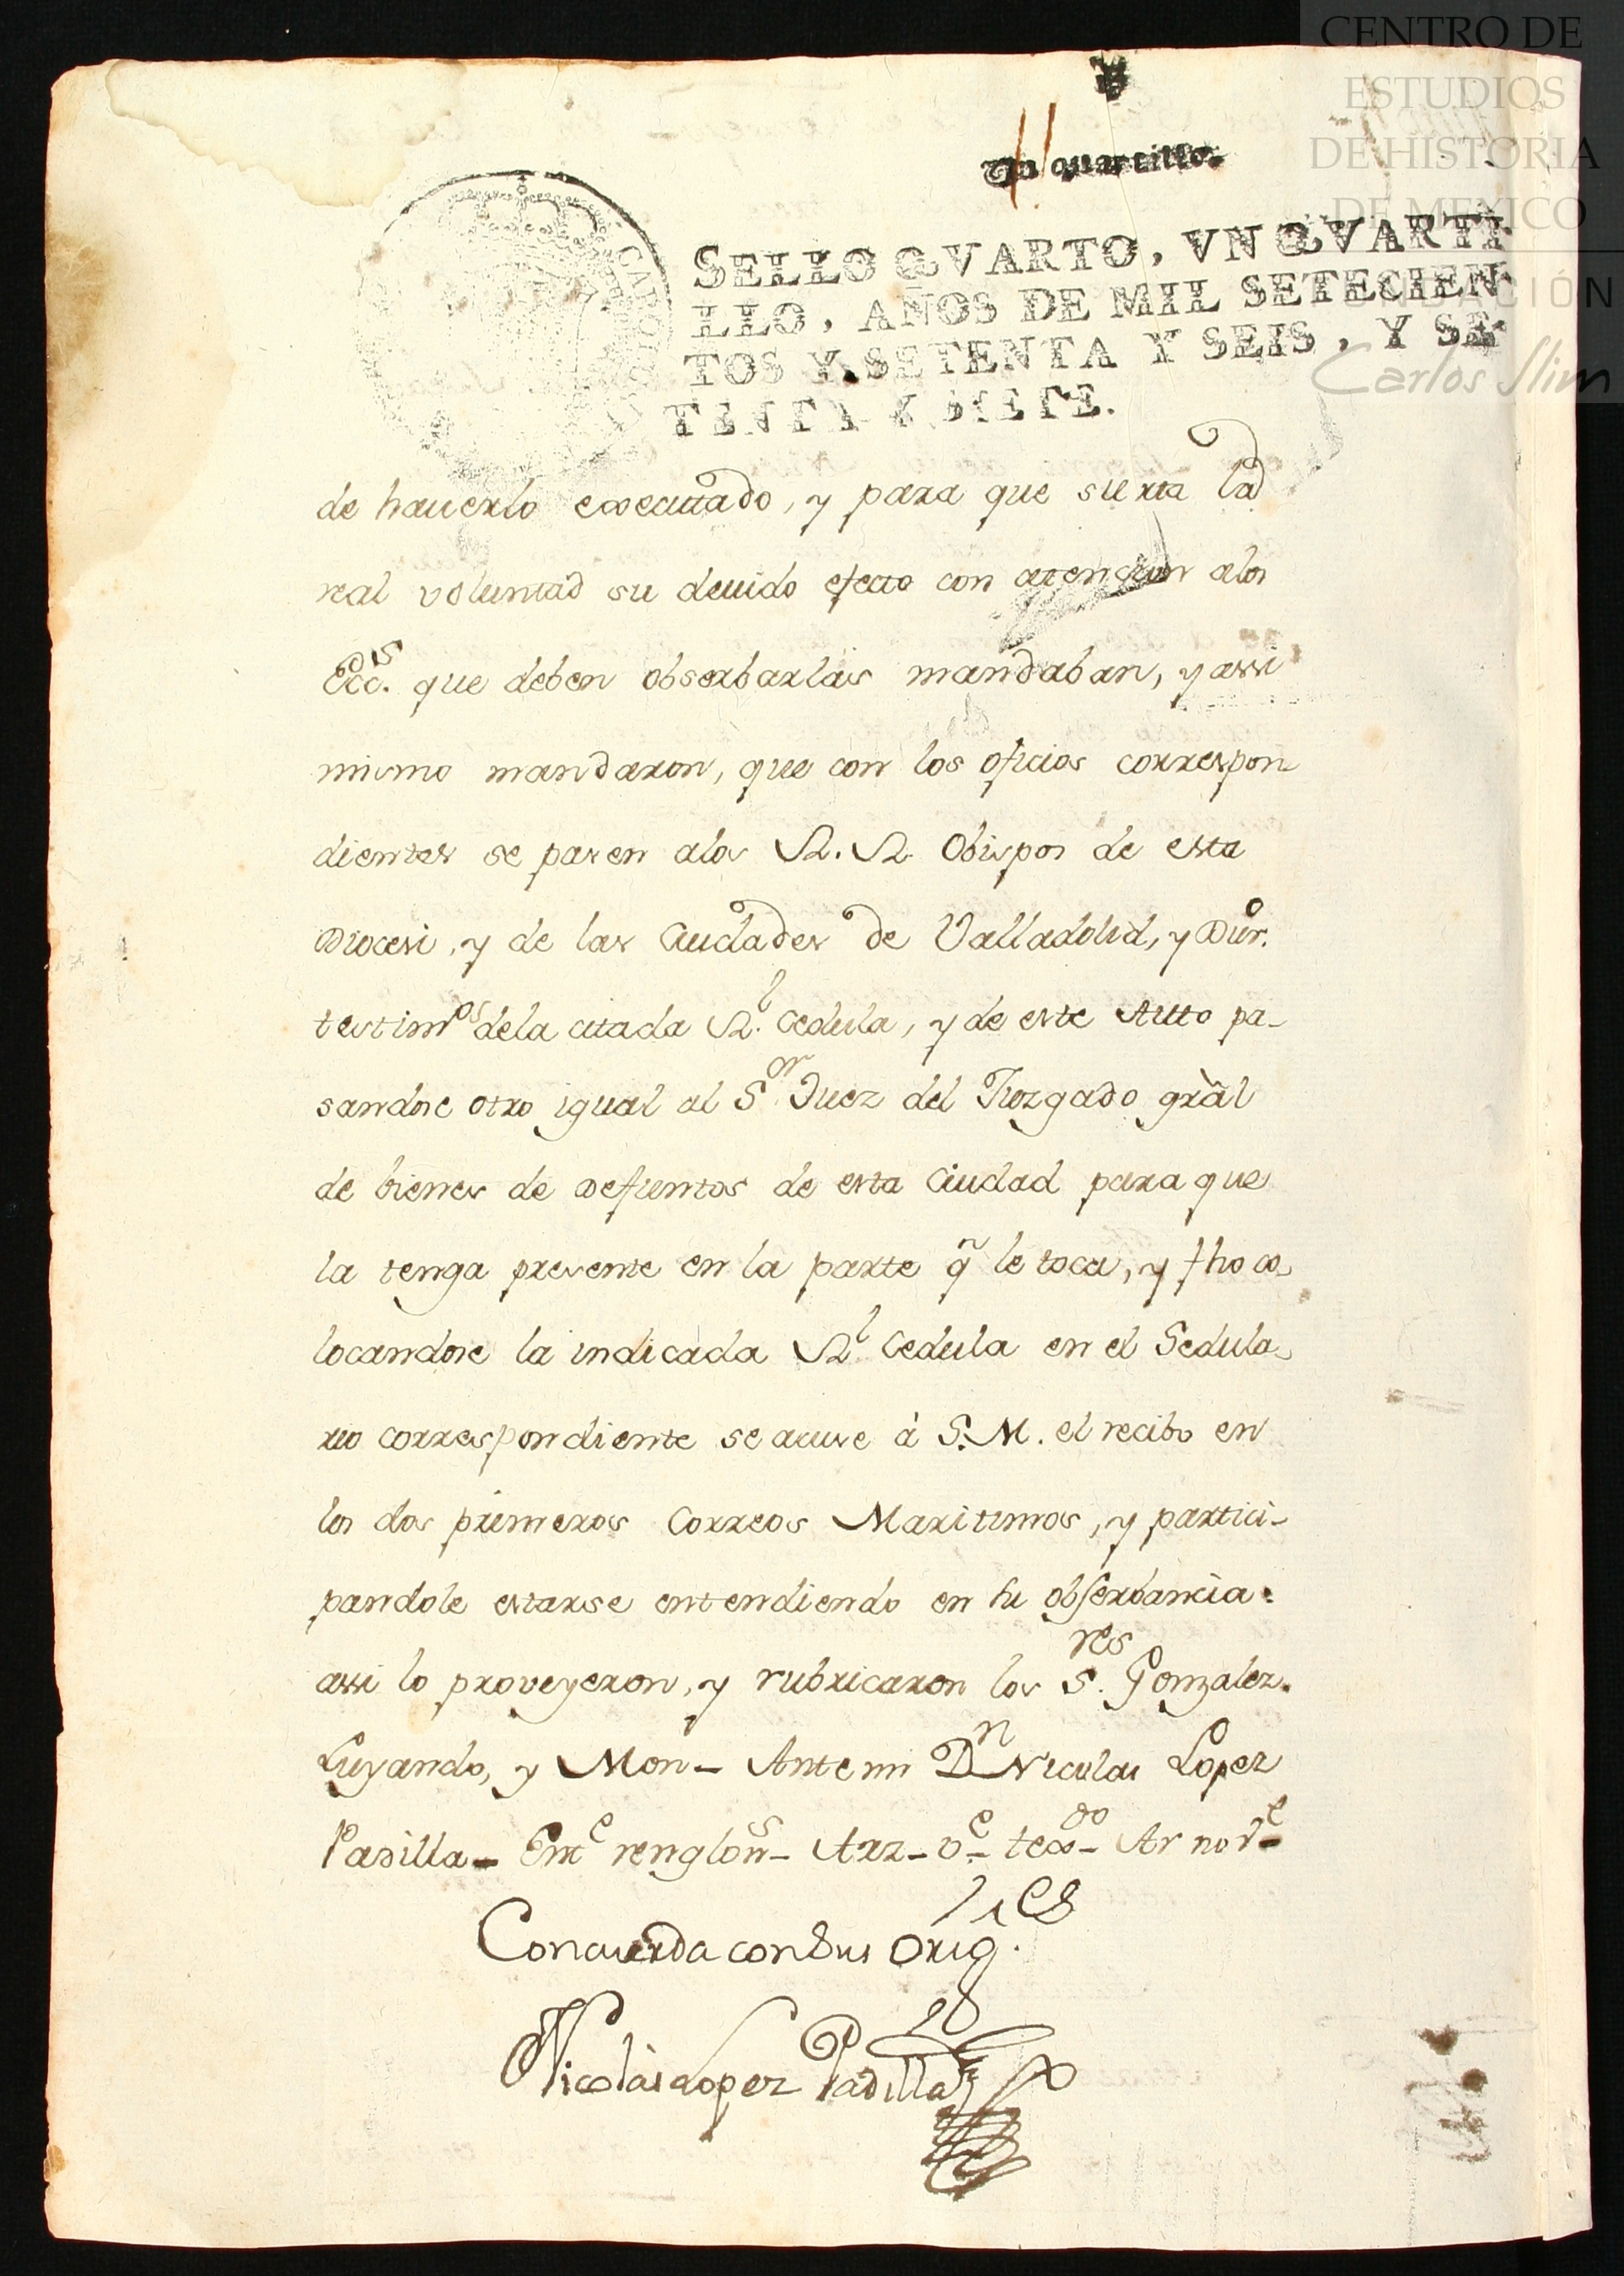 CENTRO DE
ESTUDIOS
DE HISTORIA
DE MEXICO
Carlos Slim
Un quartillo.
SELLO QVARTO, VN QVARTI-
LLO, AÑOS DE MIL SETECIEN-
TOS Y SETENTA Y SEIS, Y SE-
TENTA Y SIETE.
de hauerlo executado, y para que surta la
real voluntad su deuido efecto con atencion alos
que deben obserbarlas mandaban, y assi
mismo mandaron, que con los oficios correspon-
dientes se pasen alos R. R. Obispos de esta
Diocesi, y de las Ciudades de Valladolid, y Dur.º
testimºˢ dela citada Rˡ. Cedula, y de este Auto pa-
sandose otro igual al Sᵒʳ. Juez del Juzgado gràl
de bienes de Defuntos de esta Ciudad para que
la tenga presente en la parte q̃ le toca, y fho co-
locandose la indicada Rˡ Cedula en el Sedula-
rio correspondiente se acuse à S.M. el recibo en
los dos primeros Correos Maritimos, y partici-
pandole estarse entendiendo en su obserbancia.
assi lo proveyeron, y rubricaron los Sʳᵉˢ. Gonzalez.
Luyando, y Mon - Ante mi Dⁿ Nicolas Lopez
Padilla - Emᵉ renglonˢ -
Concuerda con sus Orig.ˡᵉˢ
Nicolàs Lopez Padilla